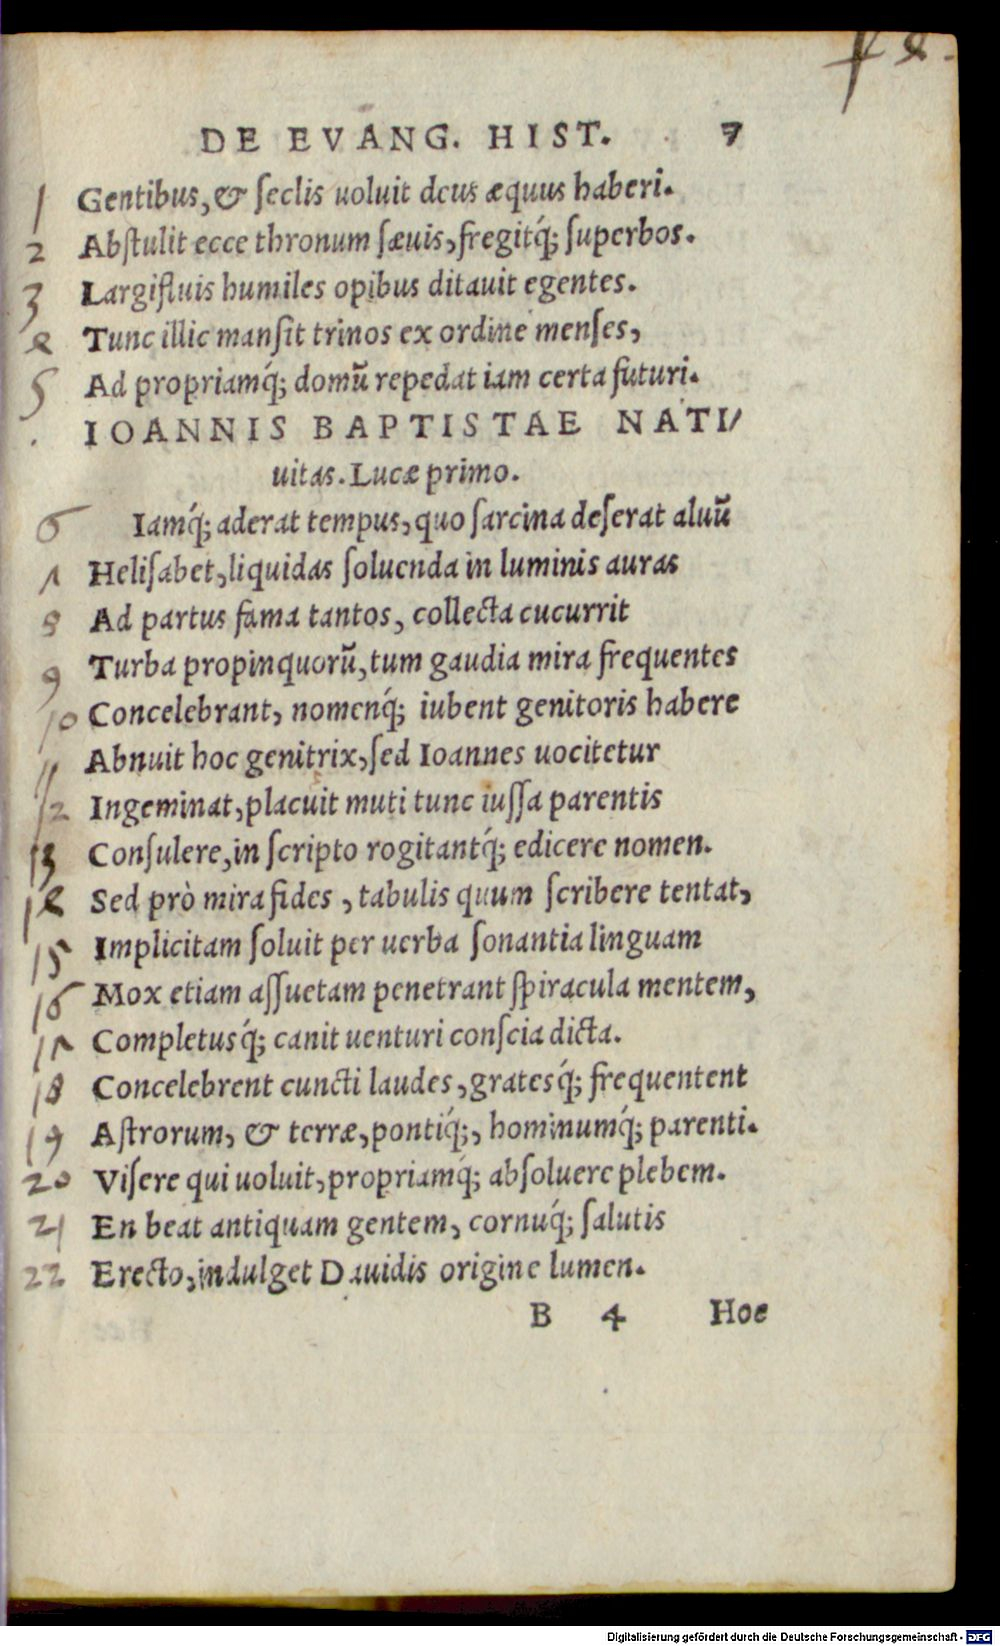 DE EVANG. HIST. 7
1 Gentibus, & ſeclis uoluit deus æquus haberi.
2 Abſtulit ecce thronum ſæuis, fregitq́; ſuperbos.
3 Largifluis humiles opibus ditauit egentes.
Tunc illic manſit trinos ex ordine menſes,
5 Ad propriamq́; domũ repedat iam certa futuri.
IOANNIS BAPTISTAE NATI/
uitas. Lucæ primo.
6 Iamq́; aderat tempus, quo ſarcina deſerat aluũ
Heliſabet, liquidas ſoluenda in luminis auras
8 Ad partus fama tantos, collecta cucurrit
9 Turba propinquorũ, tum gaudia mira frequentes
10 Concelebrant, nomenq́; iubent genitoris habere
11 Abnuit hoc genitrix, ſed Ioannes uocitetur
12 Ingeminat, placuit muti tunc iuſſa parentis
13 Conſulere, in ſcripto rogitantq́; edicere nomen.
Sed prò mira fides , tabulis quum ſcribere tentat,
15 Implicitam ſoluit per uerba ſonantia linguam
16 Mox etiam aſſuetam penetrant ſpiracula mentem,
Completusq́; canit uenturi conſcia dicta.
18 Concelebrent cuncti laudes, gratesq́; frequentent
19 Aſtrorum, & terræ, pontiq́;, hominumq́; parenti.
20 Viſere qui uoluit, propriamq́; abſoluere plebem.
21 En beat antiquam gentem, cornuq́; ſalutis
22 Erecto, indulget Dauidis origine lumen.
B 4 Hoc
Digitalisierung gefördert durch die Deutsche Forschungsgemeinschaft - DFG